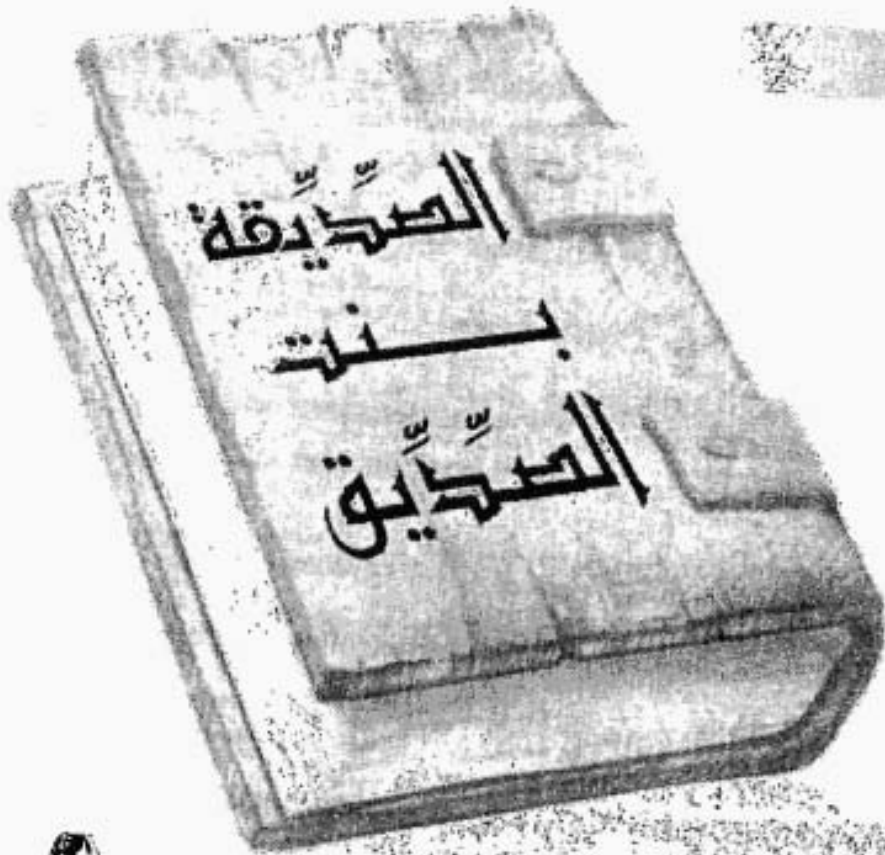 الصِّدِّيقة
بـــنت
الصِّدِّيق